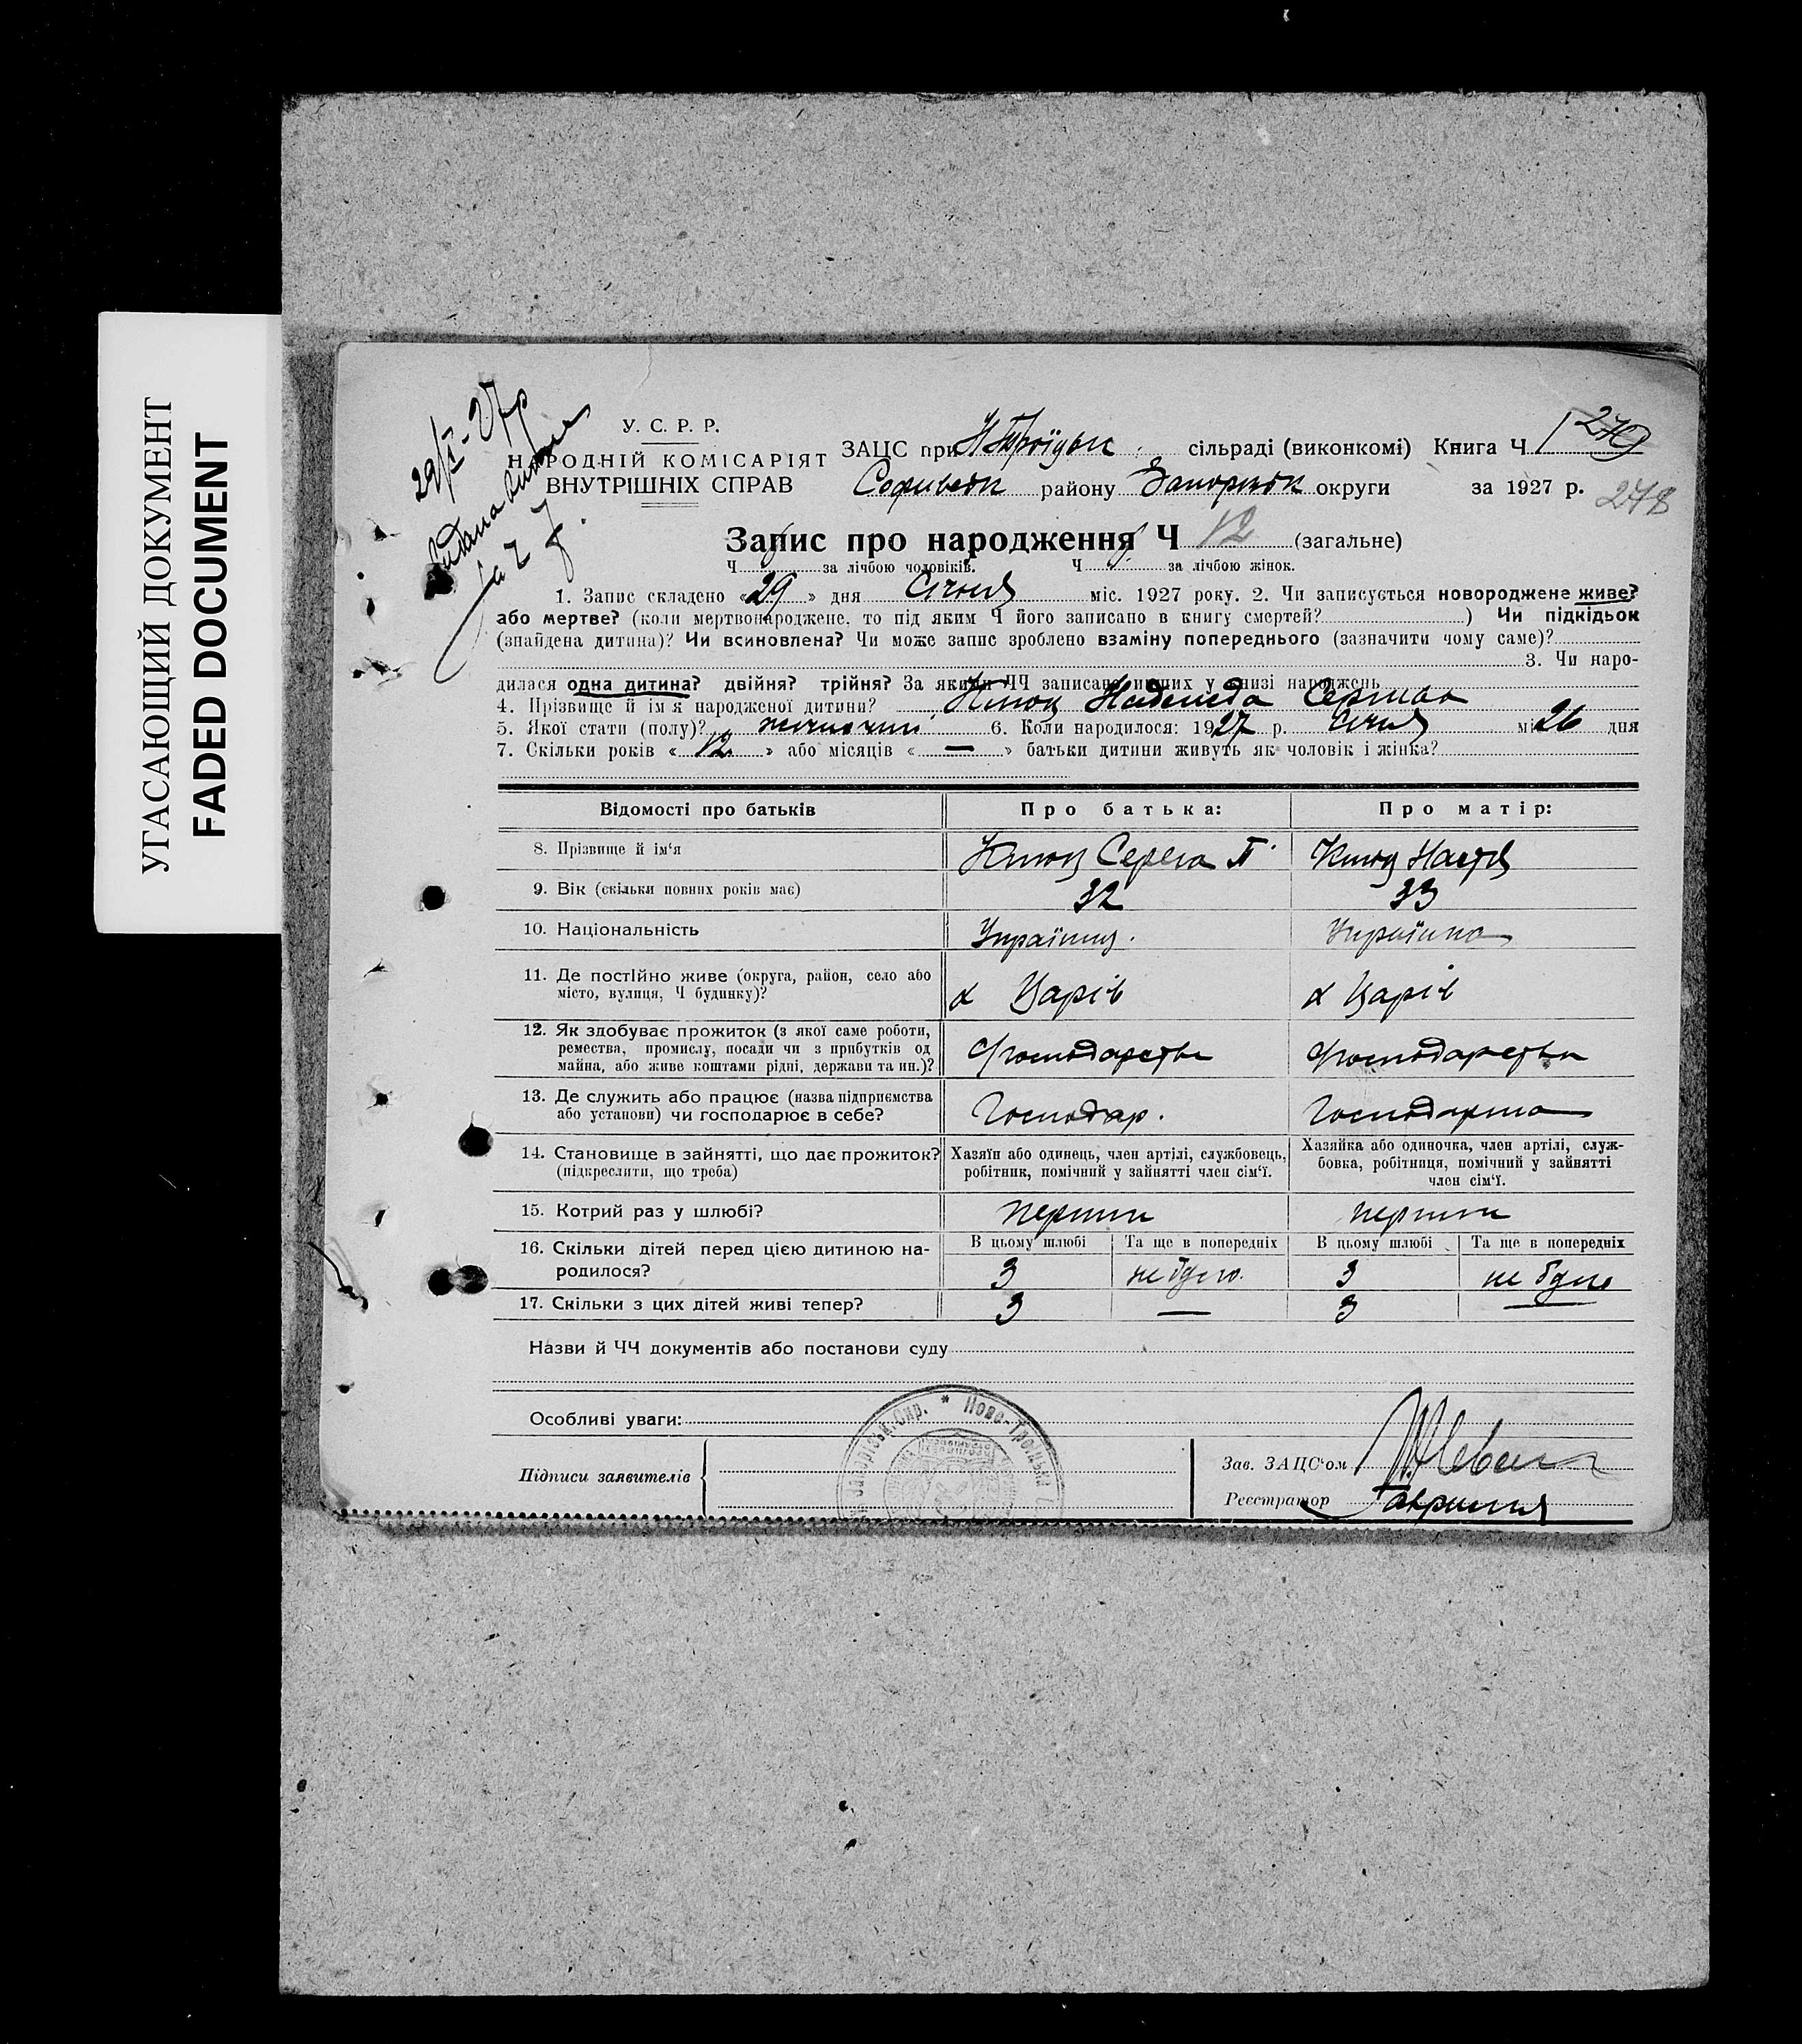 УГАСАЮЩИЙ ДОКУМЕНТ
FADED DOCUMENT
29/I-27р
У. С. Р. Р.
НАРОДНІЙ КОМІСАРІЯТ
ВНУТРІШНІХ СПРАВ
ЗАЦС при Н Троїцьк. сільраді (виконкомі) Книга Ч 1
Софиевск району Запоріжськ округи за 1927 р. 278
Запис про народження Ч 12 (загальне)
Ч за лічбою чоловіків. Ч за лічбою жінок.
1. Запис складено «29» дня Січня міс. 1927 року. 2. Чи записується новороджене живе?
або мертве? (коли мертвонароджене, то під яким Ч його записано в книгу смертей? ) Чи підкідьок
(знайдена дитина)? Чи всиновлена? Чи може запис зроблено взаміну попереднього (зазначити чому саме)?
3. Чи наро-
дилася одна дитина? двійня? трійня? За якими ЧЧ записано инших у книзі народжень
4. Прізвище й ім'я народженої дитини? Надежда
5. Якої стати (полу)? жіночий 6. Коли народилося: 1927 р. Січня мі 26 дня
7. Скільки років «12» або місяців «—» батьки дитини живуть як чоловік і жінка?
Відомості про батьків Про батька: Про матір:
8. Прізвище й ім'я Сергій П. Настя
9. Вік (скільки повних років має) 32 33
10. Національність Українець. Українка
11. Де постійно живе (округа, район, село або
місто, вулиця, Ч будинку)? х Царів х Царів
12. Як здобуває прожиток (з якої саме роботи,
ремества, промислу, посади чи з прибутків од
майна, або живе коштами рідні, держави та ин.)? Господарства Господарства
13. Де служить або працює (назва підприємства
або установи) чи господарює в себе? Господар. Господарка
14. Становище в зайнятті, що дає прожиток?
(підкреслити, що треба)
Хазяїн або одинець, член артілі, службовець,
робітник, помічний у зайнятті член сім'ї.
Хазяйка або одиночка, член артілі, служ-
бовка, робітниця, помічний у зайнятті
член сім'ї.
15. Котрий раз у шлюбі? перший перший
16. Скільки дітей перед цією дитиною на-
родилося?
В цьому шлюбі Та ще в попередніх В цьому шлюбі Та ще в попередніх
3 не було. 3 не було
17. Скільки з цих дітей живі тепер? 3 — 3 —
Назви й ЧЧ документів або постанови суду
Особливі уваги:
Підписи заявителів
Зав. ЗАЦС'ом
Реєстратор